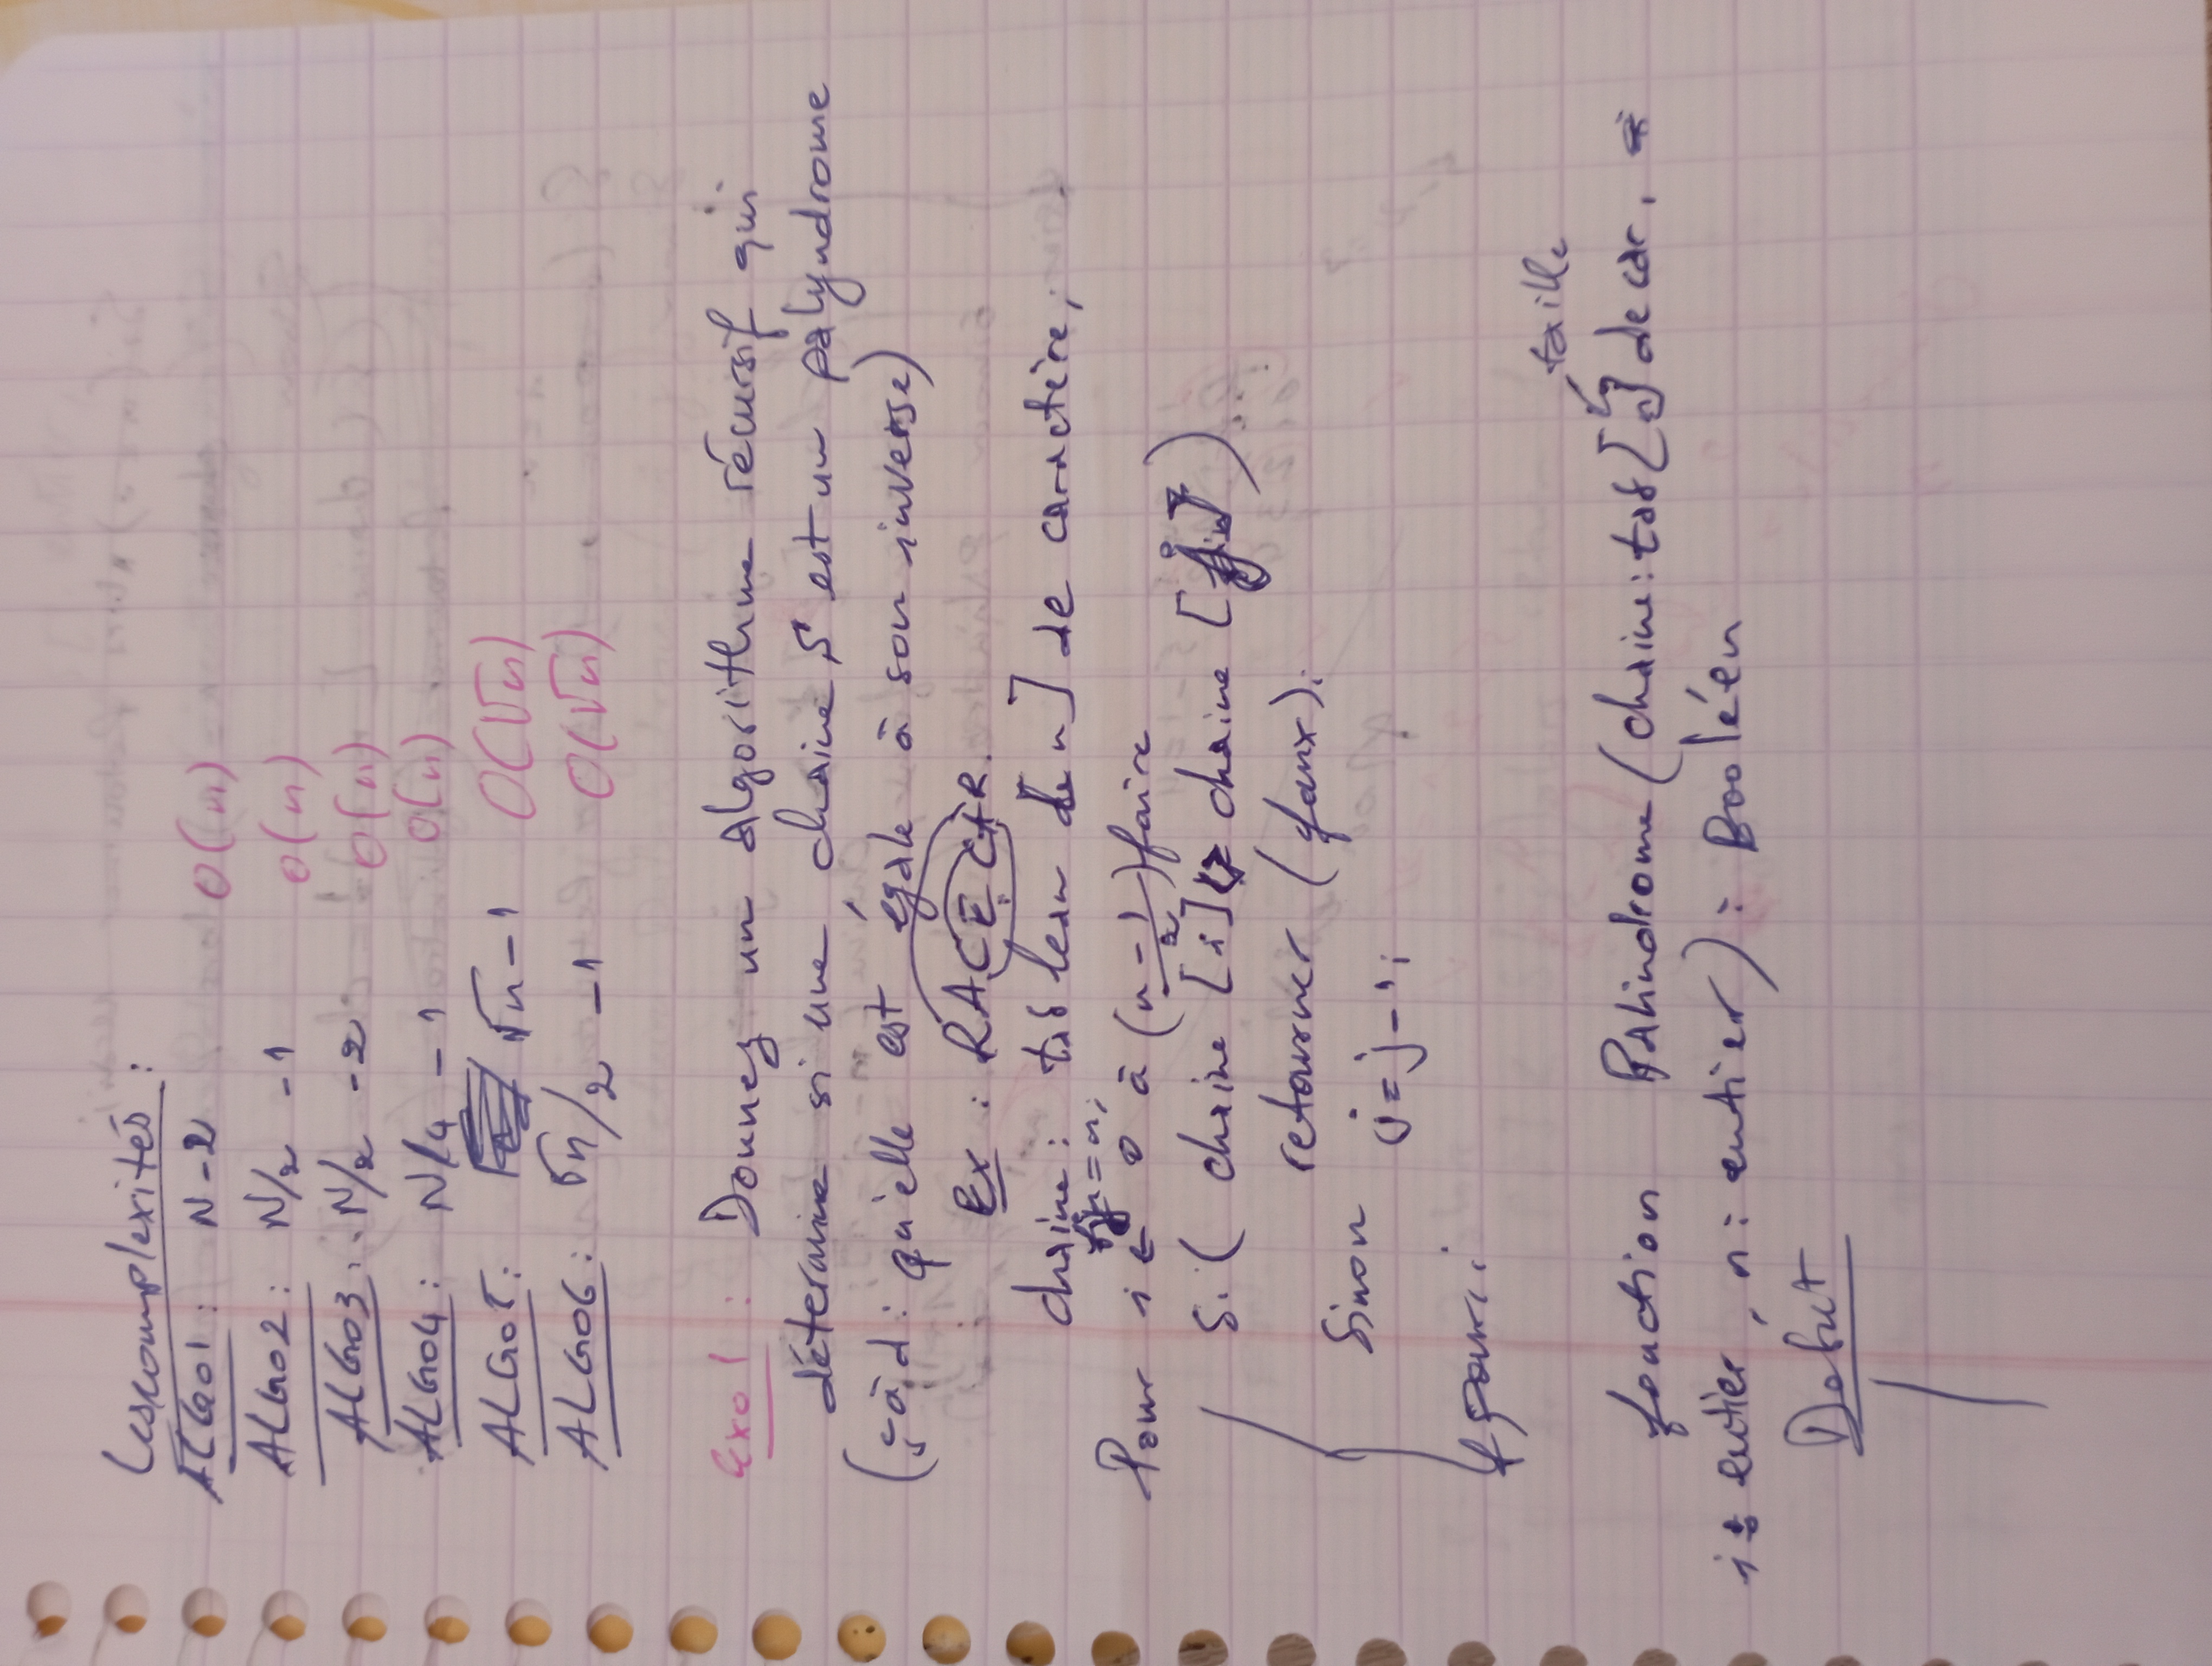 Les complexités :
ALGO1 : N-2 O(n)
ALGO2 : N/2 -1 O(n)
ALGO3 : N/2 -2 O(n)
ALGO4 : N/4 -1 O(n)
ALGO5 : √n -1 O(√n)
ALGO6 : √n/2 -1 O(√n)
Exo1 : Donnez un algorithme récursif qui
détermine si une chaine S est un palyndrome
(c-à-d : qu'elle est égale à son inverse)
Ex : RACECAR.
chaine : tableau de n] de caractère,
j=n;
Pour i ← 0 à (n-1/2) faire
Si ( chaine [i] ≠ chaine [j] )
retourner (faux);
Sinon j=j-1;
fpour;
taille
fonction Palindrome (chaine: tab[] de car,
i: entier, n: entier) : Booléen
Debut